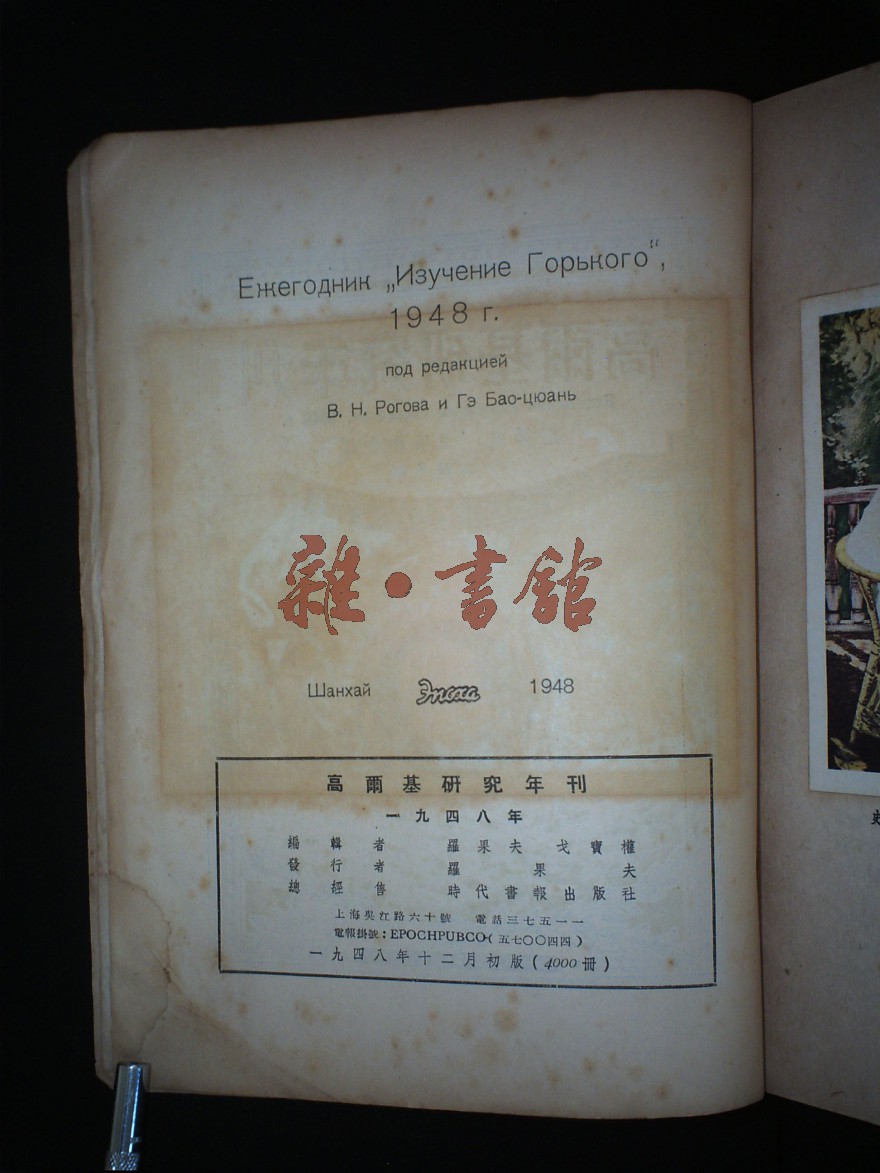 Ежегодник „Изучение Горького“,
1948 г.
под редакцией
В. Н. Рогова и Гэ Бао-цюань
雜•書館
Шанхай Эпоха 1948
高爾基研究年刊
一九四八年
編輯者 羅果夫 戈寶權
發行者 羅果夫
總經售 時代書報出版社
上海吳江路六十號 電話三七五一一
電報掛號:EPOCHPUBCO(五七〇〇四四)
一九四八年十二月初版(4000冊)